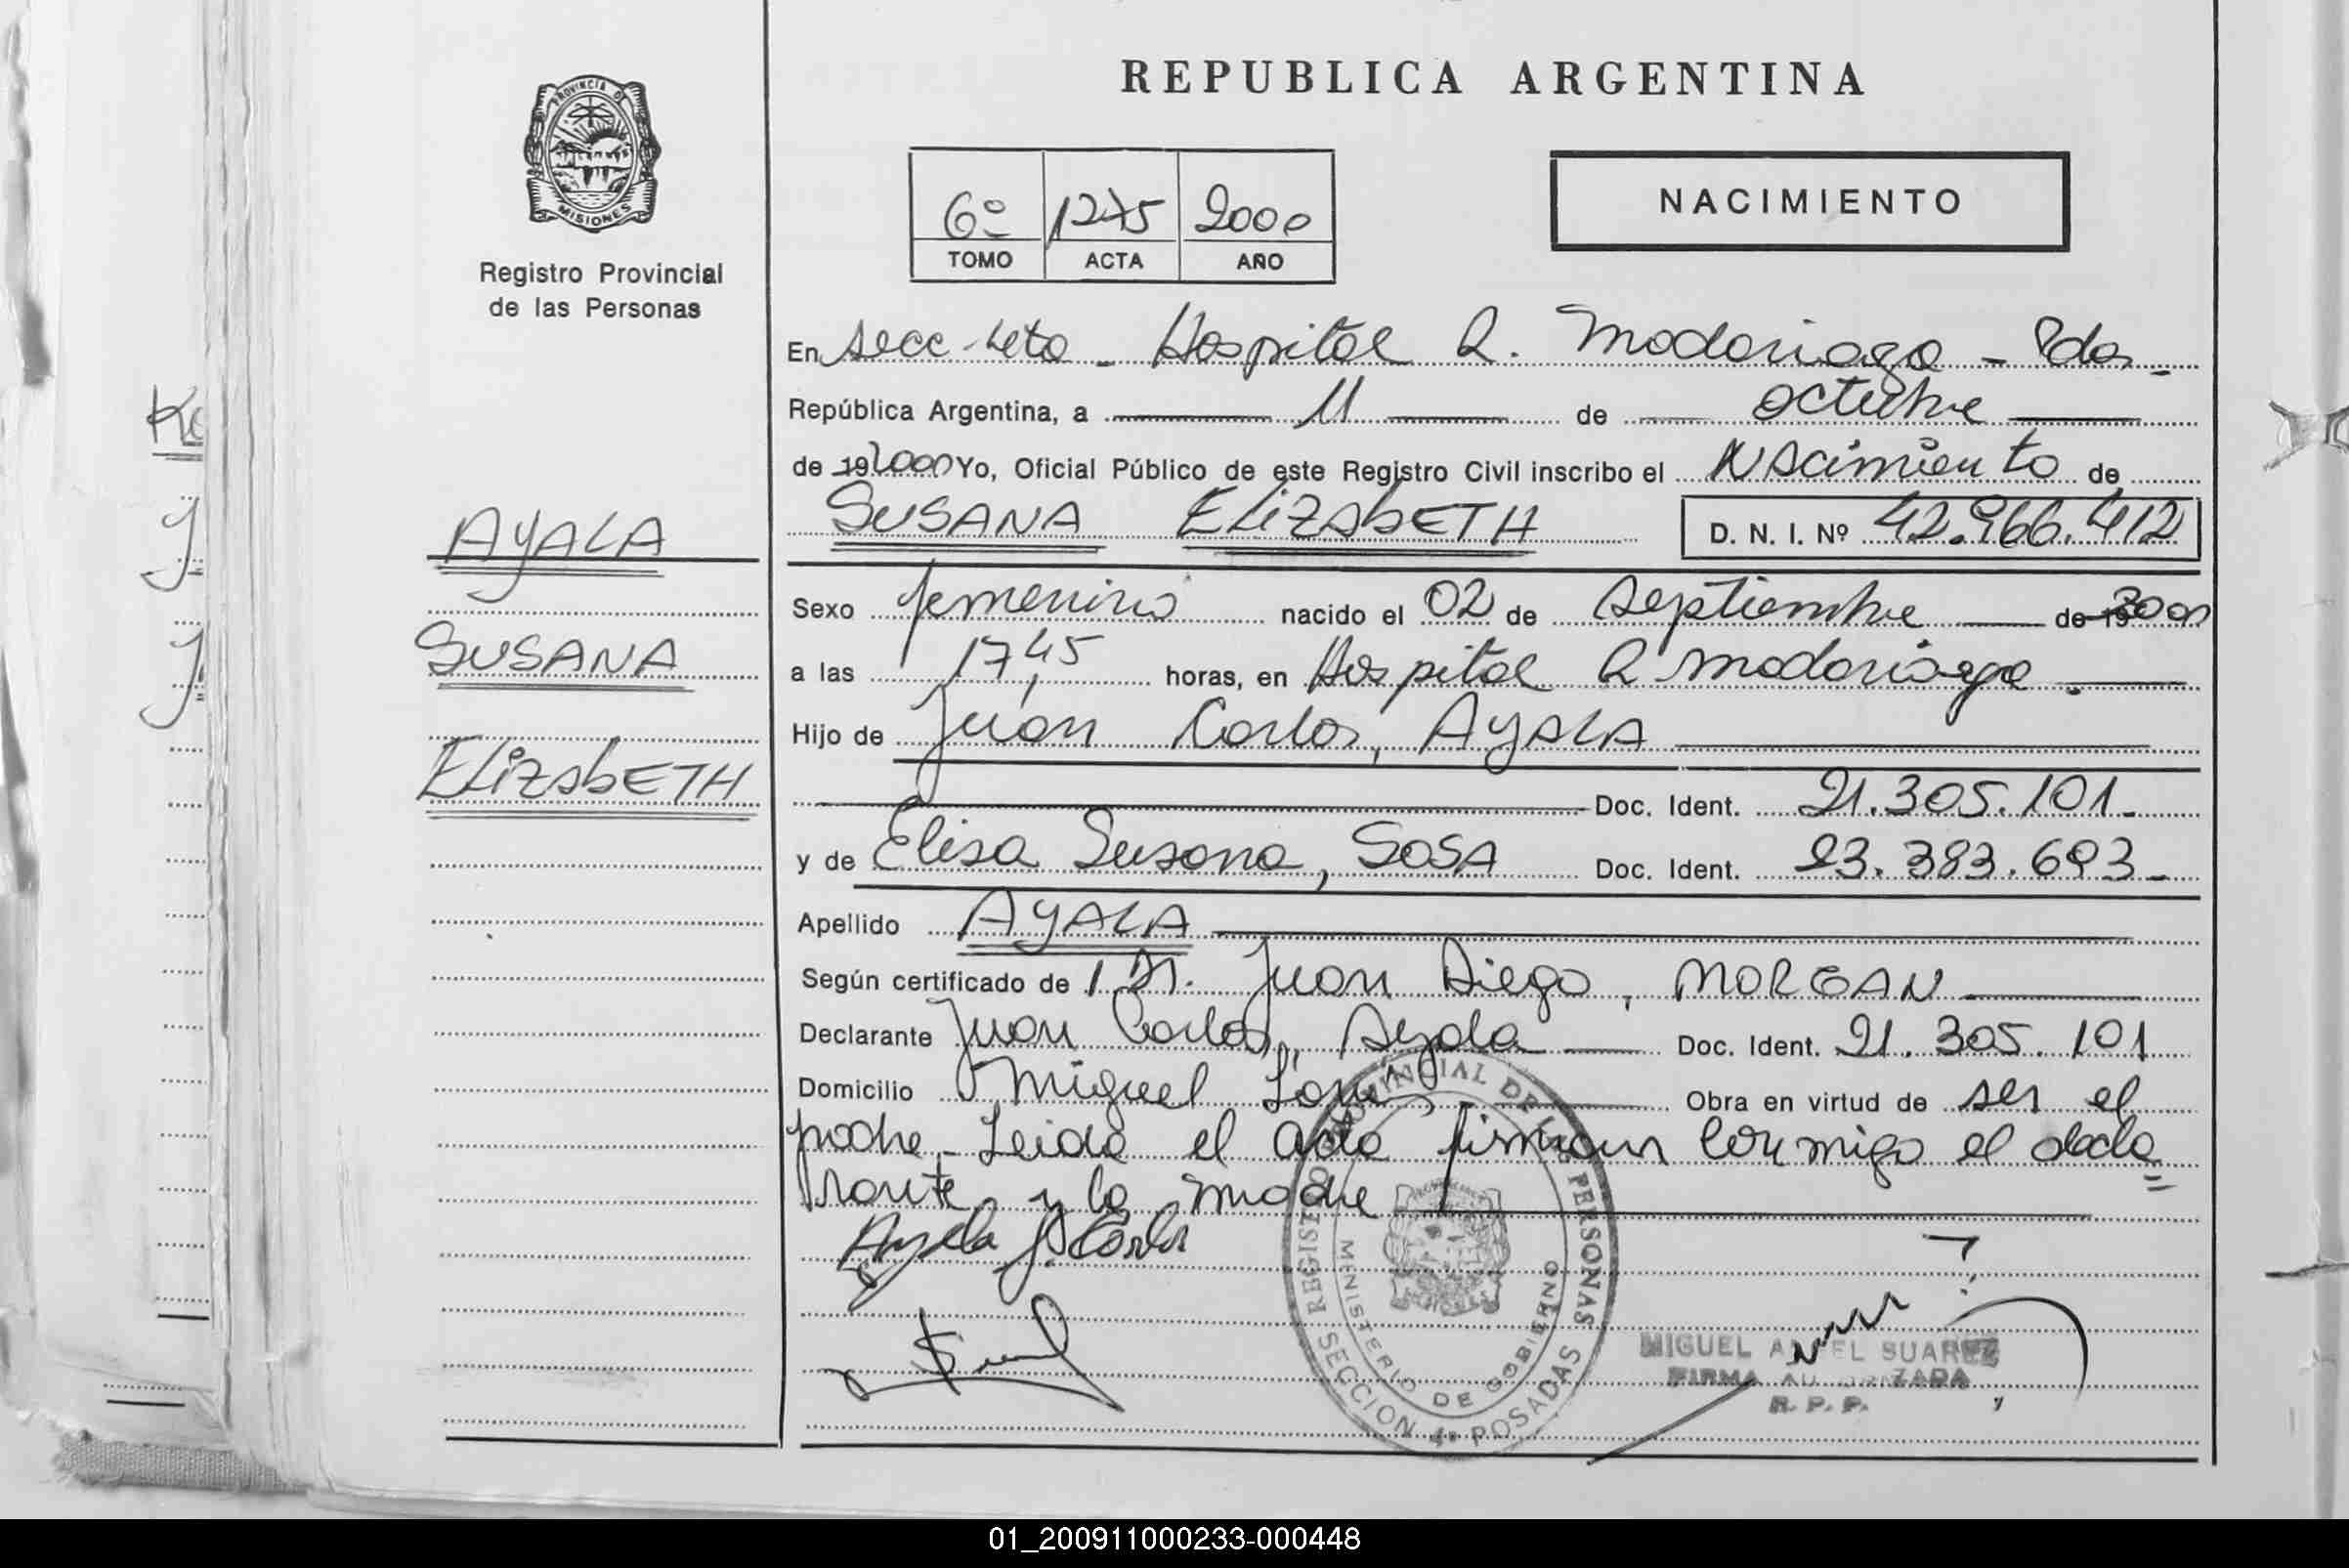 REPUBLICA ARGENTINA
PROVINCIA DE
MISIONES
Registro Provincial
de las Personas
6º 1275 2000
TOMO ACTA AÑO
NACIMIENTO
En Secc. 4ta - Hospital R. Madariaga - Pdas -
República Argentina, a 11 de octubre
de 19 2000 Yo, Oficial Público de este Registro Civil inscribo el Nacimiento de
SUSANA ELIZABETH D. N. I. Nº 42.966.412
AYALA
SUSANA
ELIZABETH
Sexo femenino nacido el 02 de septiembre de 19 2000
a las 17,45 horas, en Hospital R Madariaga.
Hijo de Juan Carlos, AYALA
Doc. Ident. 21.305.101-
y de Elisa Susana, SOSA Doc. Ident. 23.383.693-
Apellido AYALA
Según certificado de / Dr. Juan Diego, MORGAN
Declarante Juan Carlos, Ayala Doc. Ident. 21.305.101
Domicilio Miguel Obra en virtud de ser el
padre - Leida el acta firman conmigo el decla=
rante y la madre
Ayala J. Carlos
REGISTRO PROVINCIAL DE LAS PERSONAS
MINISTERIO DE GOBIERNO
SECCION 4ª POSADAS
MIGUEL ANGEL SUAREZ
FIRMA AUTORIZADA
R. P. P.
01_200911000233-000448